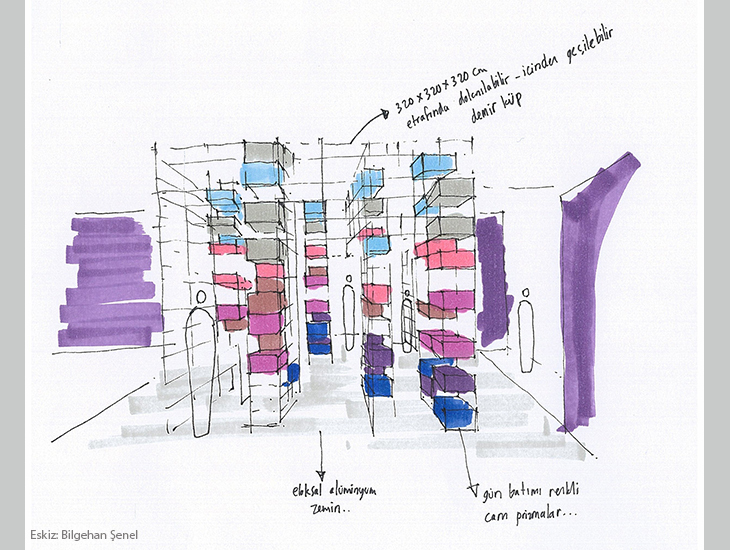 320 x 320 x 320 cm
etrafında dolanılabilir - içinden geçilebilir
demir küp
eloksal alüminyum
zemin..
gün batımı renkli
cam prizmalar...
Eskiz: Bilgehan Şenel